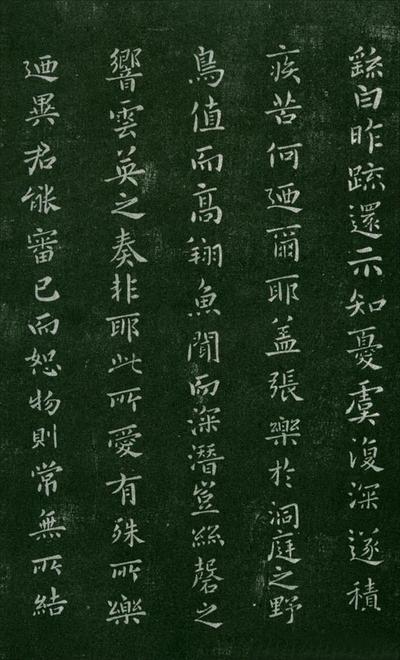 繇白昨疏還示知憂虞復深遂積
疾苦何迺爾耶盖張樂於洞庭之野
鳥值而高翔魚聞而深潛豈絲磬之
響雲英之奏非耶此所愛有殊所樂
迺異君能審己而恕物則常無所結